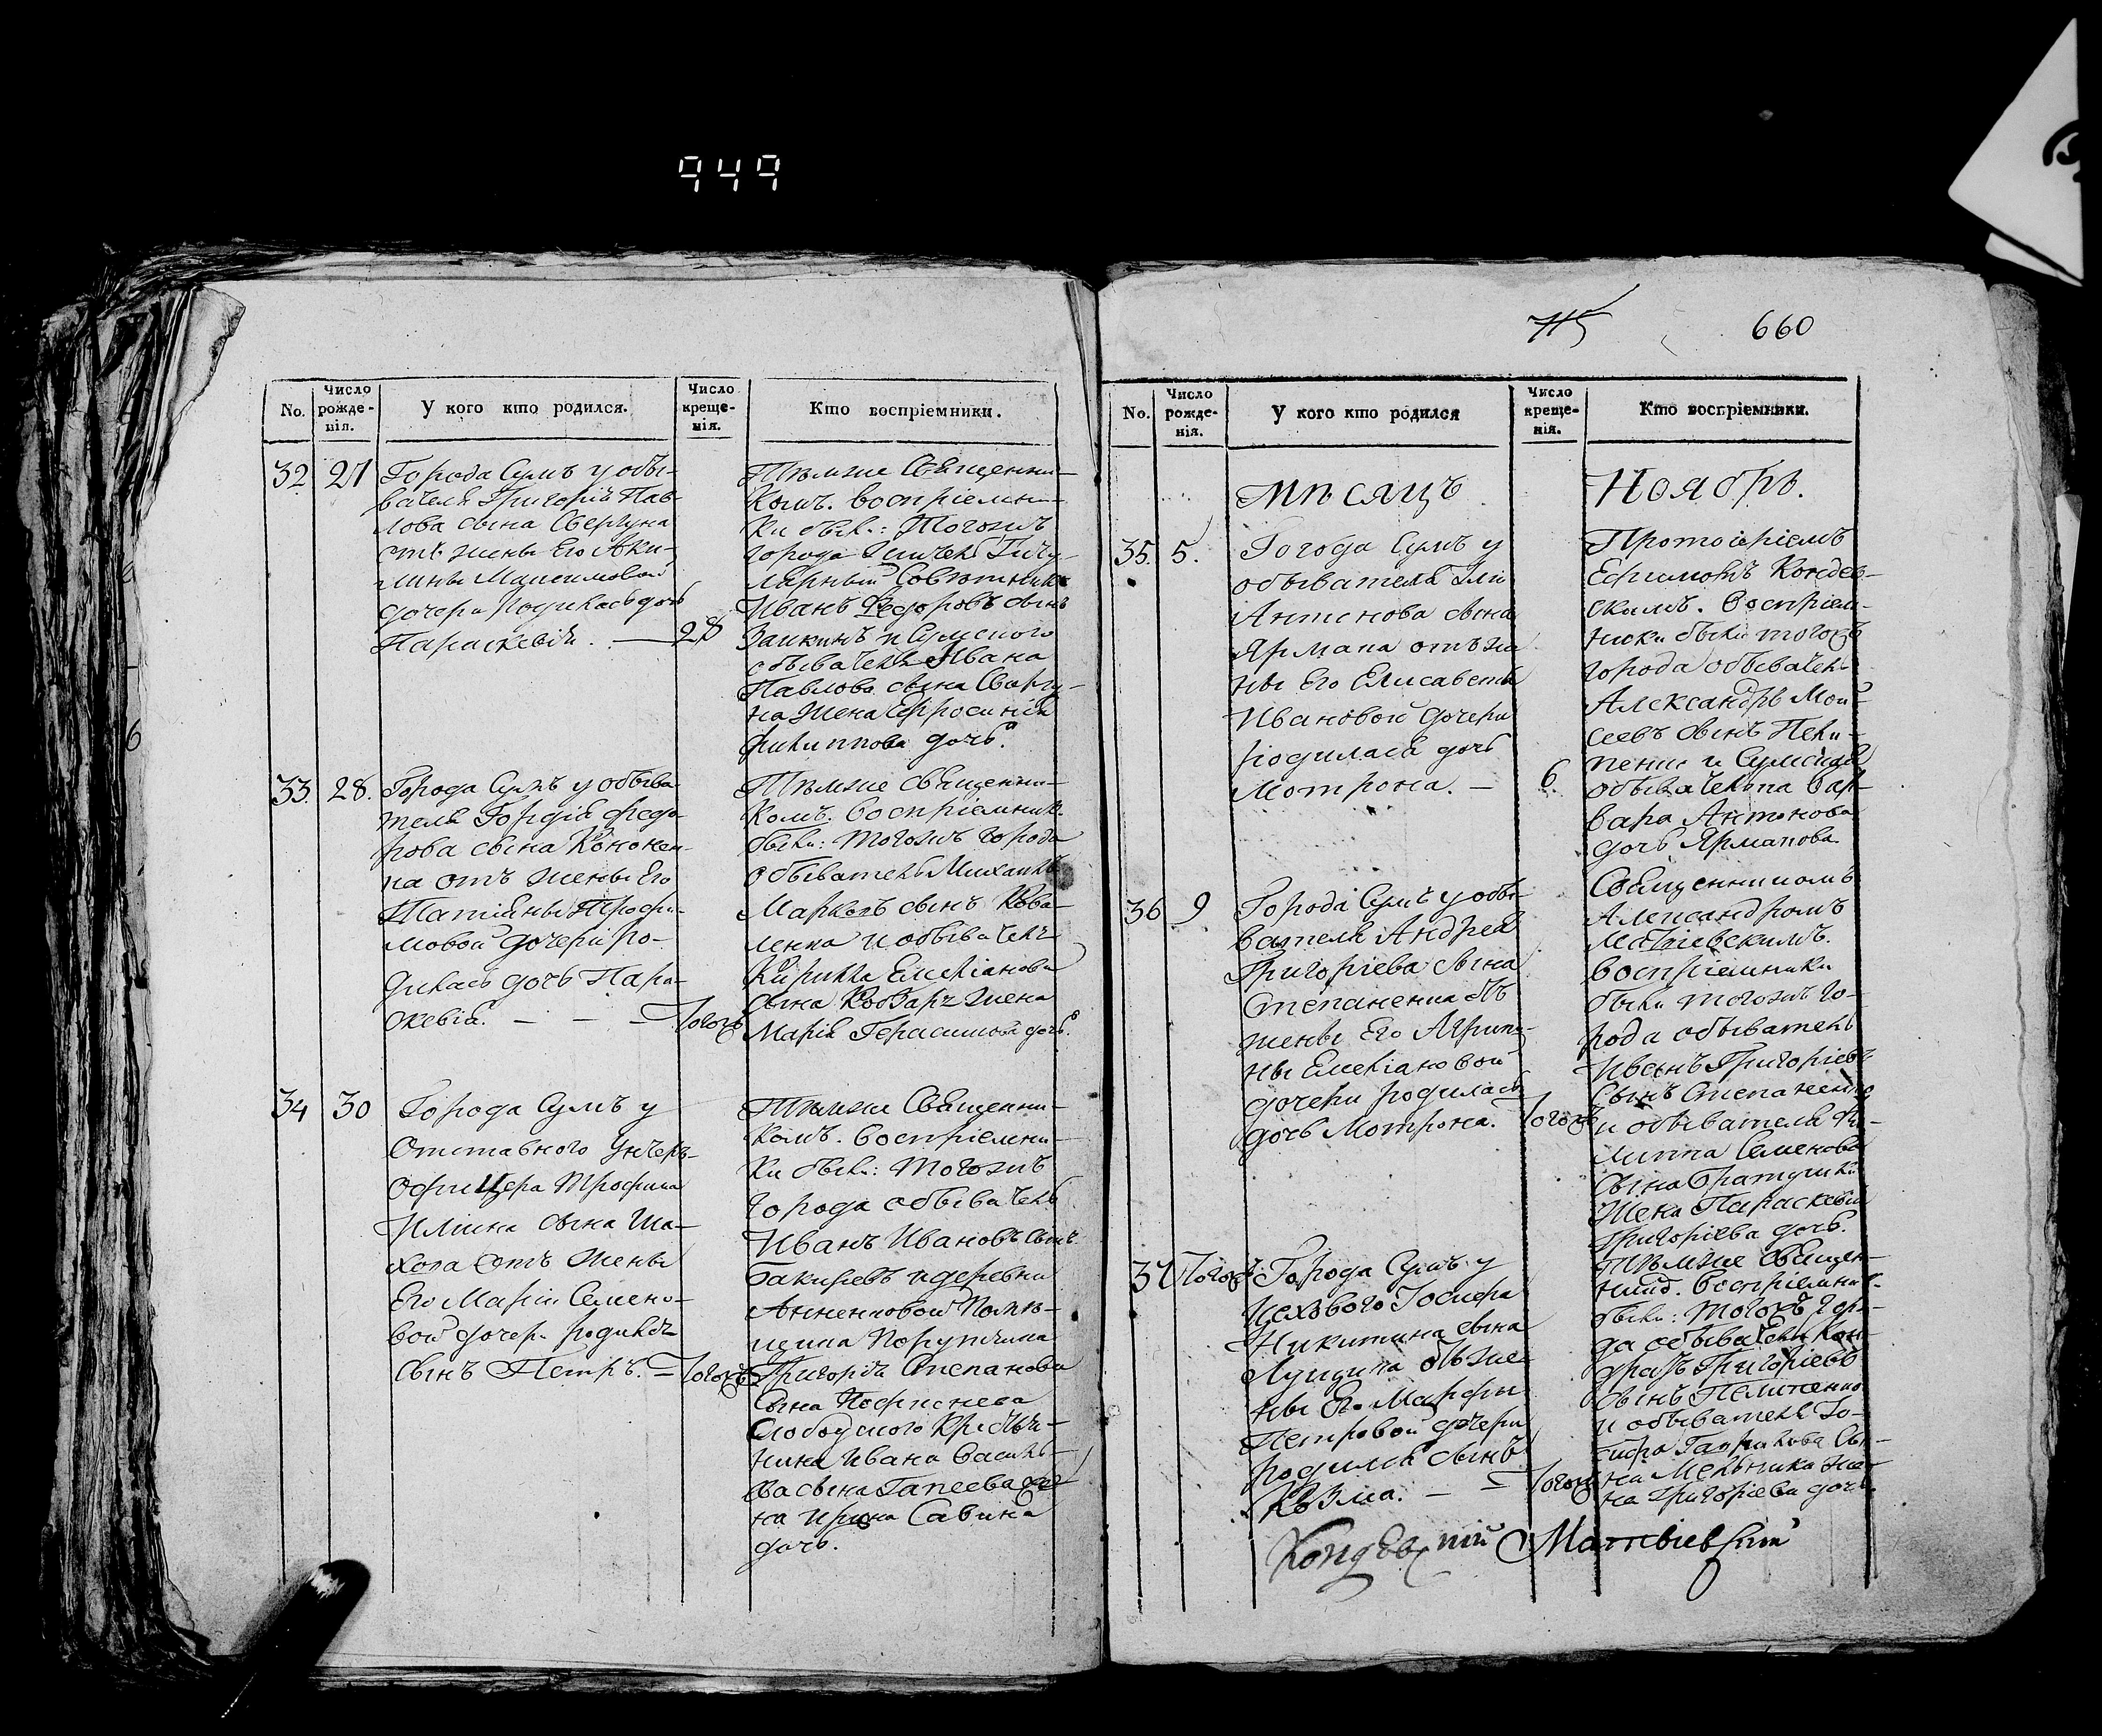 949
No.
Число рожде-нія.
У кого кто родился.
Число креще-нія.
Кто воспріемники.
32
27
Города Сумъ у обы-
вателя Григорія Пав-
лова сына Свергуна
отъ жены Его Аку-
лины Максимовой
дочери родилась дочь
Параскевія. —
28
Тѣмже Священни-
комъ. воспріемни-
ки были: Тогожъ
города
Совѣтникъ
Иванъ Федоровъ сынъ
и Сумского
обывателя Ивана
Павлова сына Свергу-
на жена Ефросинія
Филиппова дочь.
33.
28.
Города Сумъ у обыва
теля Гордія Федо-
рова сына Кононен-
ка отъ жены Его
Татіяны Трофи-
мовой дочери ро-
дилась дочь Пара-
скевія. — — —
Тогожъ
Тѣмже священни-
комъ. воспріемник.
были: Тогожъ города
обыватель Михаилъ
Марковъ сынъ Кова-
ленка и обывателя
Кирилла Емеліанова
сына Кобзаря жена
Марія Герасимова дочь.
34
30
Города Сумъ у
Отставного Унтеръ-
офицера Трофима
Ильина сына Ша-
хова отъ жены
Его Маріи Семено-
вой дочери родился
сынъ Петръ. —
Тогожъ
Тѣмже Священни-
комъ. воспріемни-
ки были: Тогожъ
города обыватель
Иванъ Ивановъ сынъ
Бакировъ и деревни
Анненковой Помѣ-
щика Поручика
Григорія Степанова
Сына
Слободского
Ивана Василь-
ва сына Гапеева же-
на Ирина Савина
дочь.
660
No.
Число рожде-нія.
У кого кто родился
Число креще-нія.
Кто воспріемники.
Мѣсяцъ
Ноябрь.
35.
5.
Города Сумъ у
обывателя Ильи
Антонова сына
Ярмака отъ же
ны Его Елисаветы
Ивановой дочери
родилась дочь
Мотрона. —
6.
Протоіеріемъ
Ефимомъ Кондев-
скимъ. воспріем-
ники были тогожъ
города обыватель
Александръ Мои-
сеевъ сынъ Пили-
пенко и Сумская
обывателька Вар-
вара Антонова
дочь Ярмакова
36
9
Города Сумъ у обы-
вателя Андрея
Григоріева сына
Степаненка отъ
жены Его Агрипи-
ны Емеліановой
дочери родилась
дочь Мотрона.
Тогожъ
Священникомъ
Александромъ
Матвіевскимъ.
воспріемники
были тогожъ го-
рода обыватель
Иванъ Григоріевъ
сынъ Степаненко
и обывателя Фи-
липпа Семенова
сына
Жена Параскевія
Григоріева дочь.
37
Тогожъ
Города Сумъ у
Цехового
Никитина сына
Лущика отъ же-
ны Его Марфы
Петровой дочери
родился сынъ
Козма. — —
Тогожъ
Тѣмже Священ-
воспріемник.
были: Тогожъ горо-
да обыватель Кон-
дратъ Григоріевъ
сынъ
и обывателя
Гаврилова сы-
на Мельника же-
на Григоріева дочь.
Кондевскій Матвіевскій